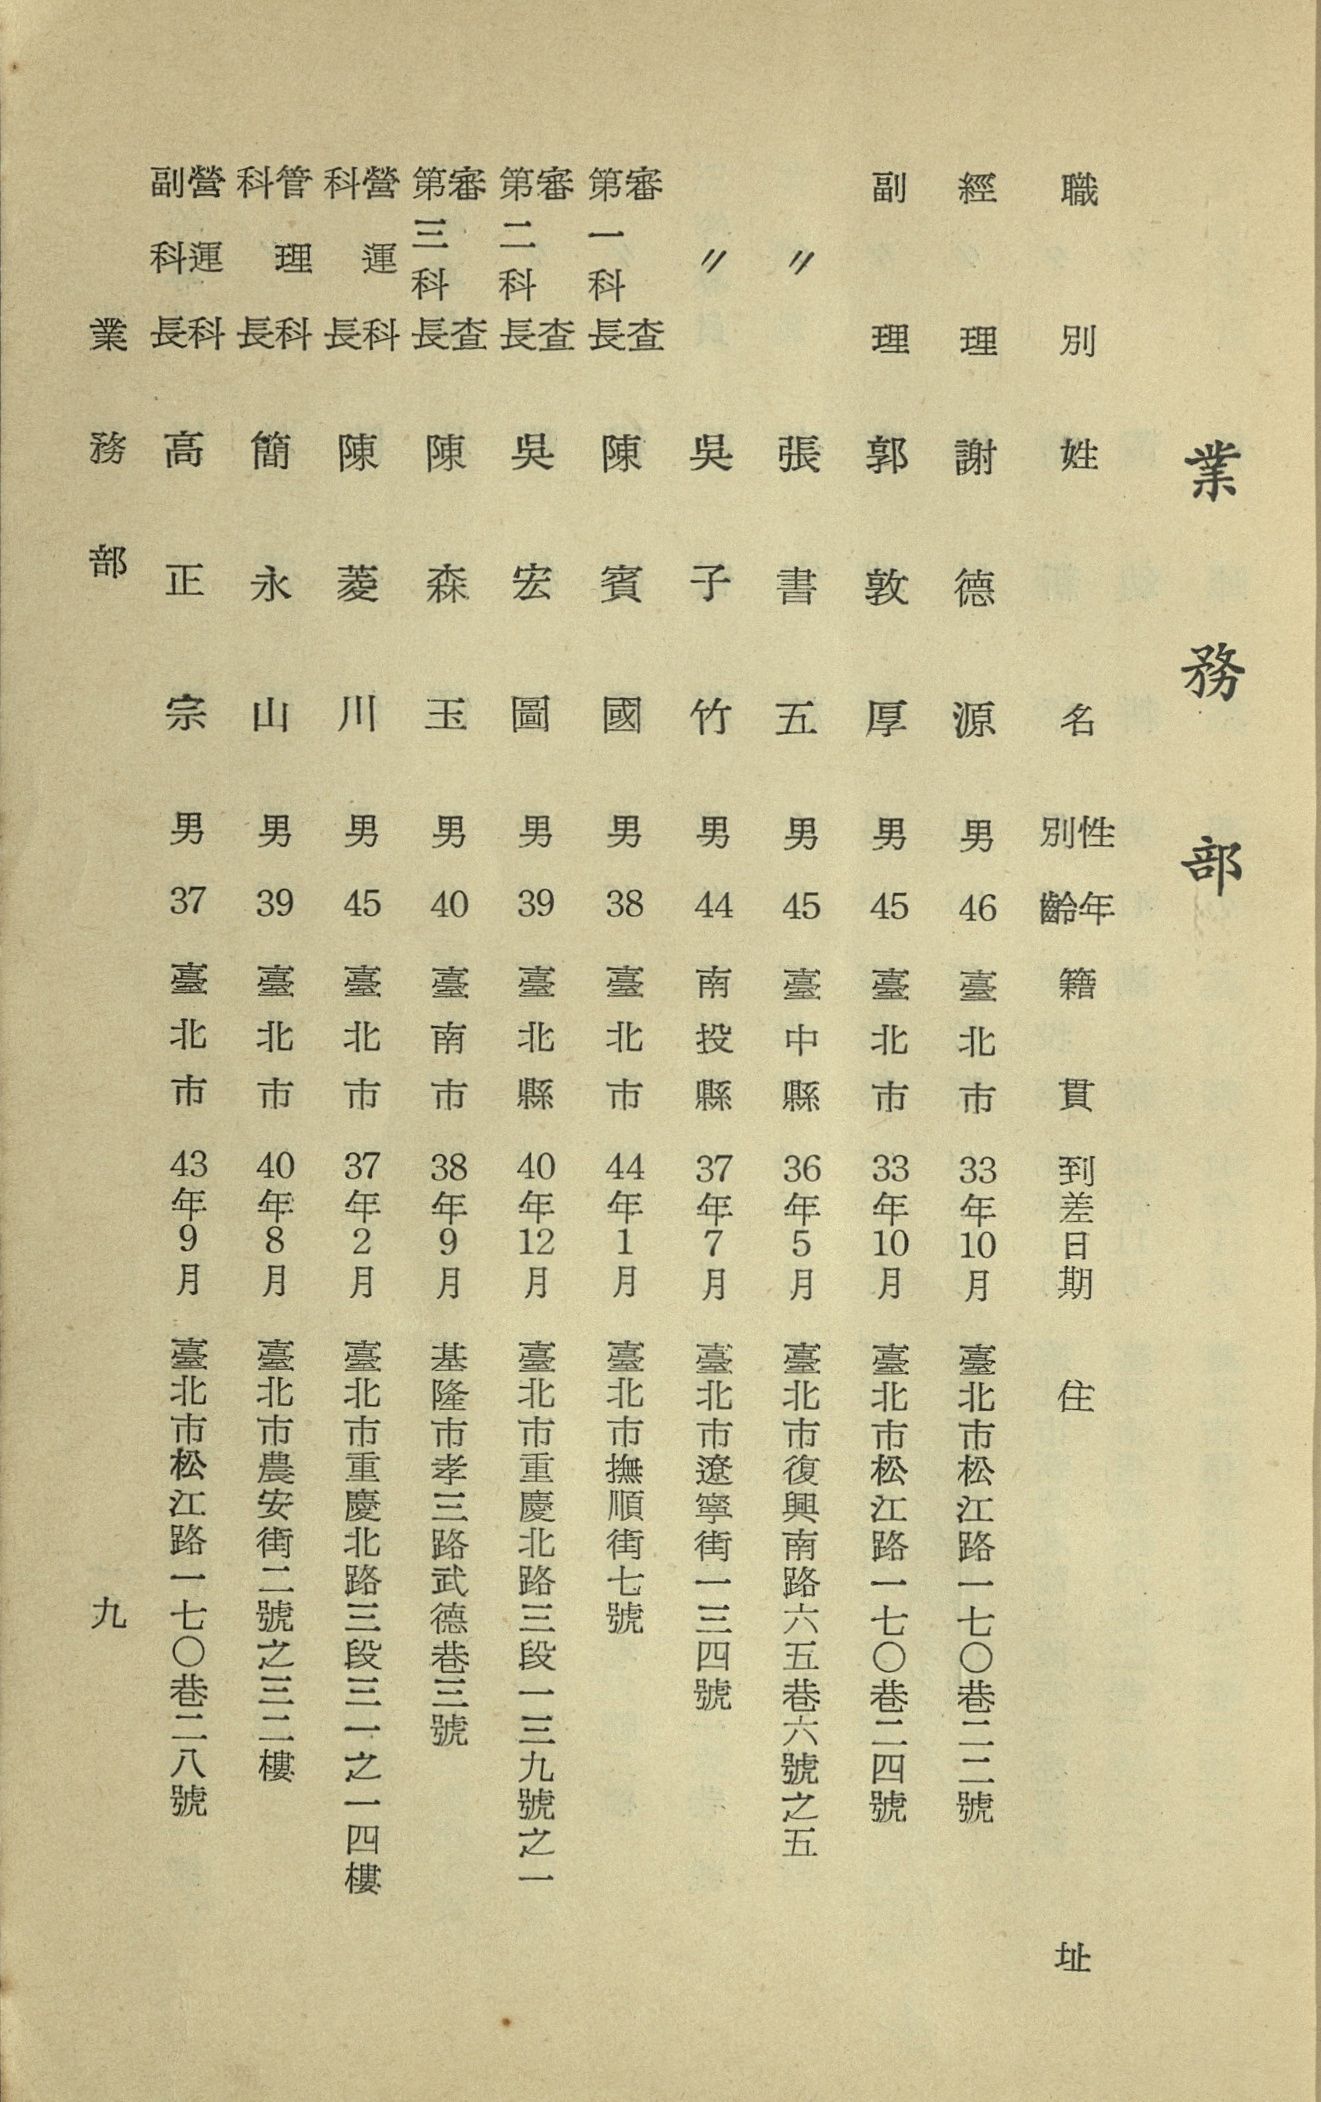 業務部
職別 姓名 性別 年齡 籍貫 到差日期 住址
經理 謝德源 男 46 臺北市 33年10月 臺北市松江路一七〇巷二二號
副理 郭敦厚 男 45 臺北市 33年10月 臺北市松江路一七〇巷二四號
〃 張書五 男 45 臺中縣 36年5月 臺北市復興南路六五巷六號之五
〃 吳子竹 男 44 南投縣 37年7月 臺北市遼寧街一三四號
審查第一科科長 陳賓國 男 38 臺北市 44年1月 臺北市撫順街七號
審查第二科科長 吳宏圖 男 39 臺北縣 40年12月 臺北市重慶北路三段一三九號之一
審查第三科科長 陳森玉 男 40 臺南市 38年9月 基隆市孝三路武德巷三號
營運科科長 陳菱川 男 45 臺北市 37年2月 臺北市重慶北路三段三一之一四樓
管理科科長 簡永山 男 39 臺北市 40年8月 臺北市農安街二號之三二樓
營運科副科長 高正宗 男 37 臺北市 43年9月 臺北市松江路一七〇巷二八號
業務部 九